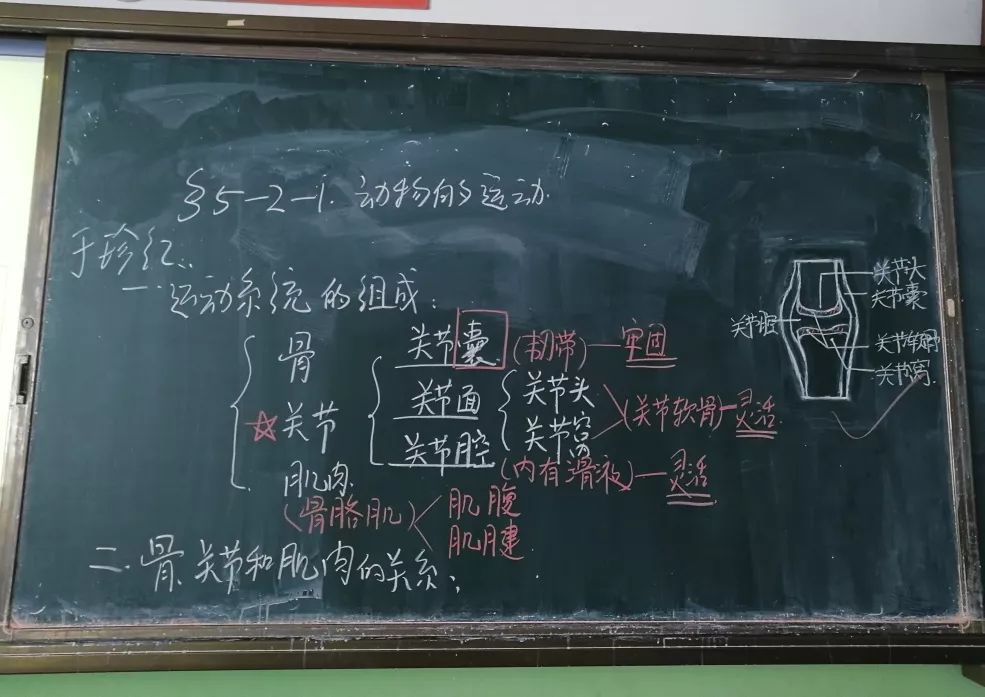 §5-2-1. 动物的运动.
于珍红.
一. 运动系统的组成:
骨
关节囊 (韧带)—牢固
☆关节
关节面
关节头
关节窝
(关节软骨)—灵活
关节腔
(内有滑液)—灵活
肌肉
(骨骼肌)
肌腹
肌腱
二. 骨、关节和肌肉的关系:
关节头
关节囊
关节腔
关节软骨
关节窝